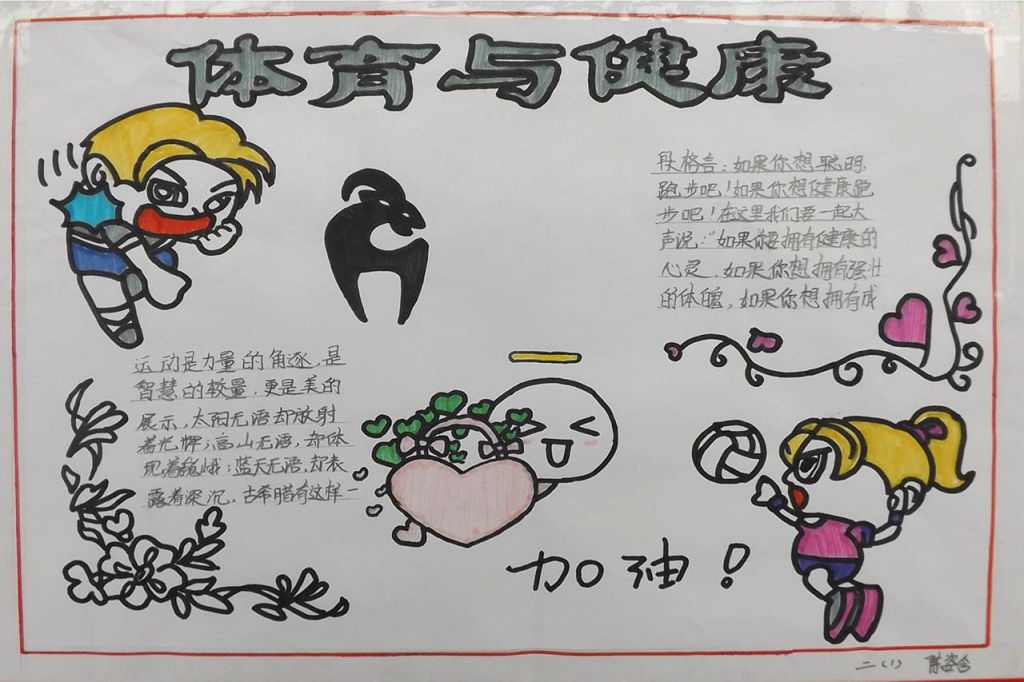 体育与健康
段格言：如果你想聪明，
跑步吧！如果你想健康跑
步吧！在这里我们要一起大
声说："如果你要拥有健康的
心灵，如果你想拥有强壮
的体魄，如果你想拥有成
运动是力量的角逐，是
智慧的较量，更是美的
展示，太阳无语却放射
着光辉；高山无语，却体
现着巍峨；蓝天无语，却表
露着深沉，古希腊有这样一
加油！
二（1） 陈姿